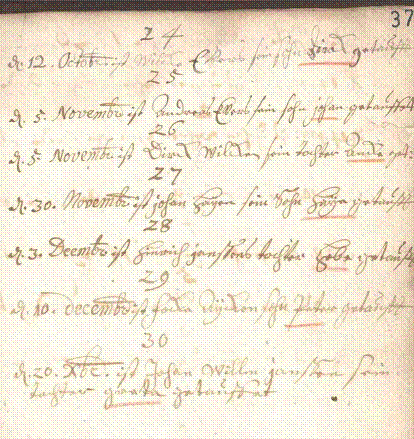 37
24
d. 12. Octobr ist Willm Eilers sein sohn Dirk getaufft
25
d. 5. Novembr ist Andreas Eilers sein sohn johan getauffet
26
d. 5. Novembr ist Dirk Willken sein tochter Anke get:
27
d. 30. Novembr ist johan Hayen sein Sohn Haye getaufft
28
d. 3. Decembr ist Hinrich janssens tochter getaufft
29
d. 10. decembr ist sohn Peter getaufft
30
d. 20. Xbr. ist Johan Willm janssen sein
tochter getauffet